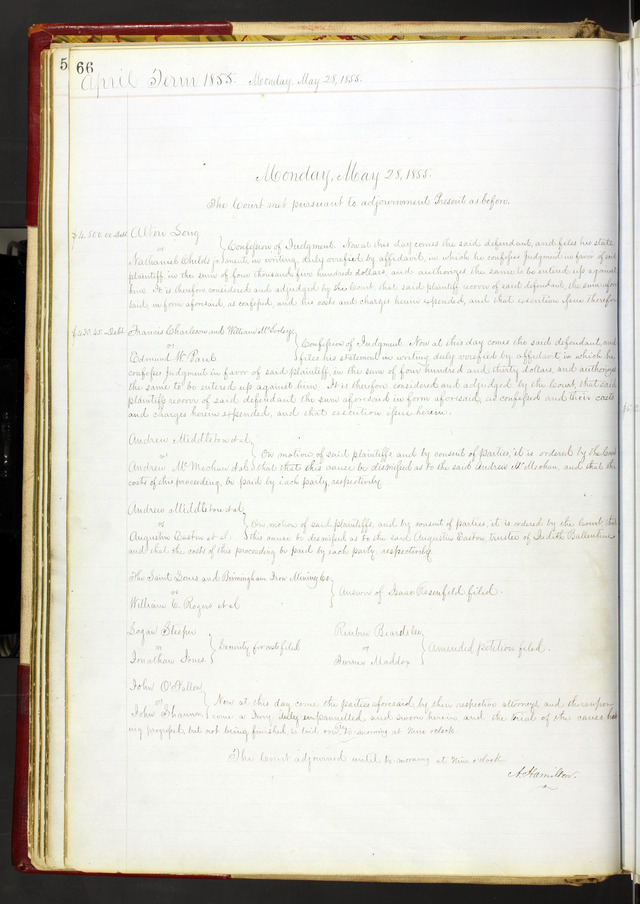 5 66
April Term 1855. Monday, May 28, 1855.
Monday, May 28, 1855.
The Court met pursuant to adjournment Present as before.
$4,500.00 Debt Alton Long
vs
Confession of Judgment. Now at this day comes the said defendant, and files his state
Nathaniel Childs ment in writing, duly verified by affidavit, in which he confesses judgment in favor of said
plaintiff in the sum of four thousand five hundred dollars, and authorizes the same to be entered up against
him. It is therefore considered and adjudged by the Court that said plaintiff recover of said defendant the sum afore
said, in form aforesaid, as confessed, and his costs and charges herein expended, and that execution issue therefor
$430.45 Debt Francis Charleson and William McSorley
vs
Confession of Judgment Now at this day comes the said defendant, and
Edmund W. Paul files his statement in writing duly verified by affidavit in which he
confesses judgment in favor of said plaintiff, in the sum of four hundred and thirty dollars, and authorizes
the same to be entered up against him. It is therefore considered and adjudged by the Court, that said
plaintiffs recover of said defendant the sum aforesaid in form aforesaid, as confessed and their costs
and charges herein expended, and that execution issue herein.
Andrew Middleton et al
vs
On motion of said plaintiffs, and by consent of parties, it is ordered by the Court
Andrew McMechan et al that this cause be dismissed as to the said Andrew McMechan, and that the
costs of this proceeding be paid by each party respectively
Andrew Middleton et al
vs
On motion of said plaintiffs, and by consent of parties, it is ordered by the Court that
Augustus Easton et al this cause be dismissed as to the said Augustus Easton, trustee of Judith Ballentine
and that the costs of this proceeding be paid by each party respectively
The Saint Louis and Birmingham Iron Mining Co.
vs
Answer of Isaac Rosenfeld filed.
William C. Rogers et al
Logan Sleeper
vs
Security for costs filed
Jonathan Jones
Reuben Beardslee
vs
Amended petition filed.
Maddox
John O'Fallon
vs
Now at this day come the parties aforesaid, by their respective attorneys, and thereupon
John Shannon come a Jury duly empannelled, and sworn herein and the trial of the cause hav
ing progressed, but not being finished is laid over to morning at nine o'clock.
The Court adjourned until to morning at nine o'clock
A. Hamilton.